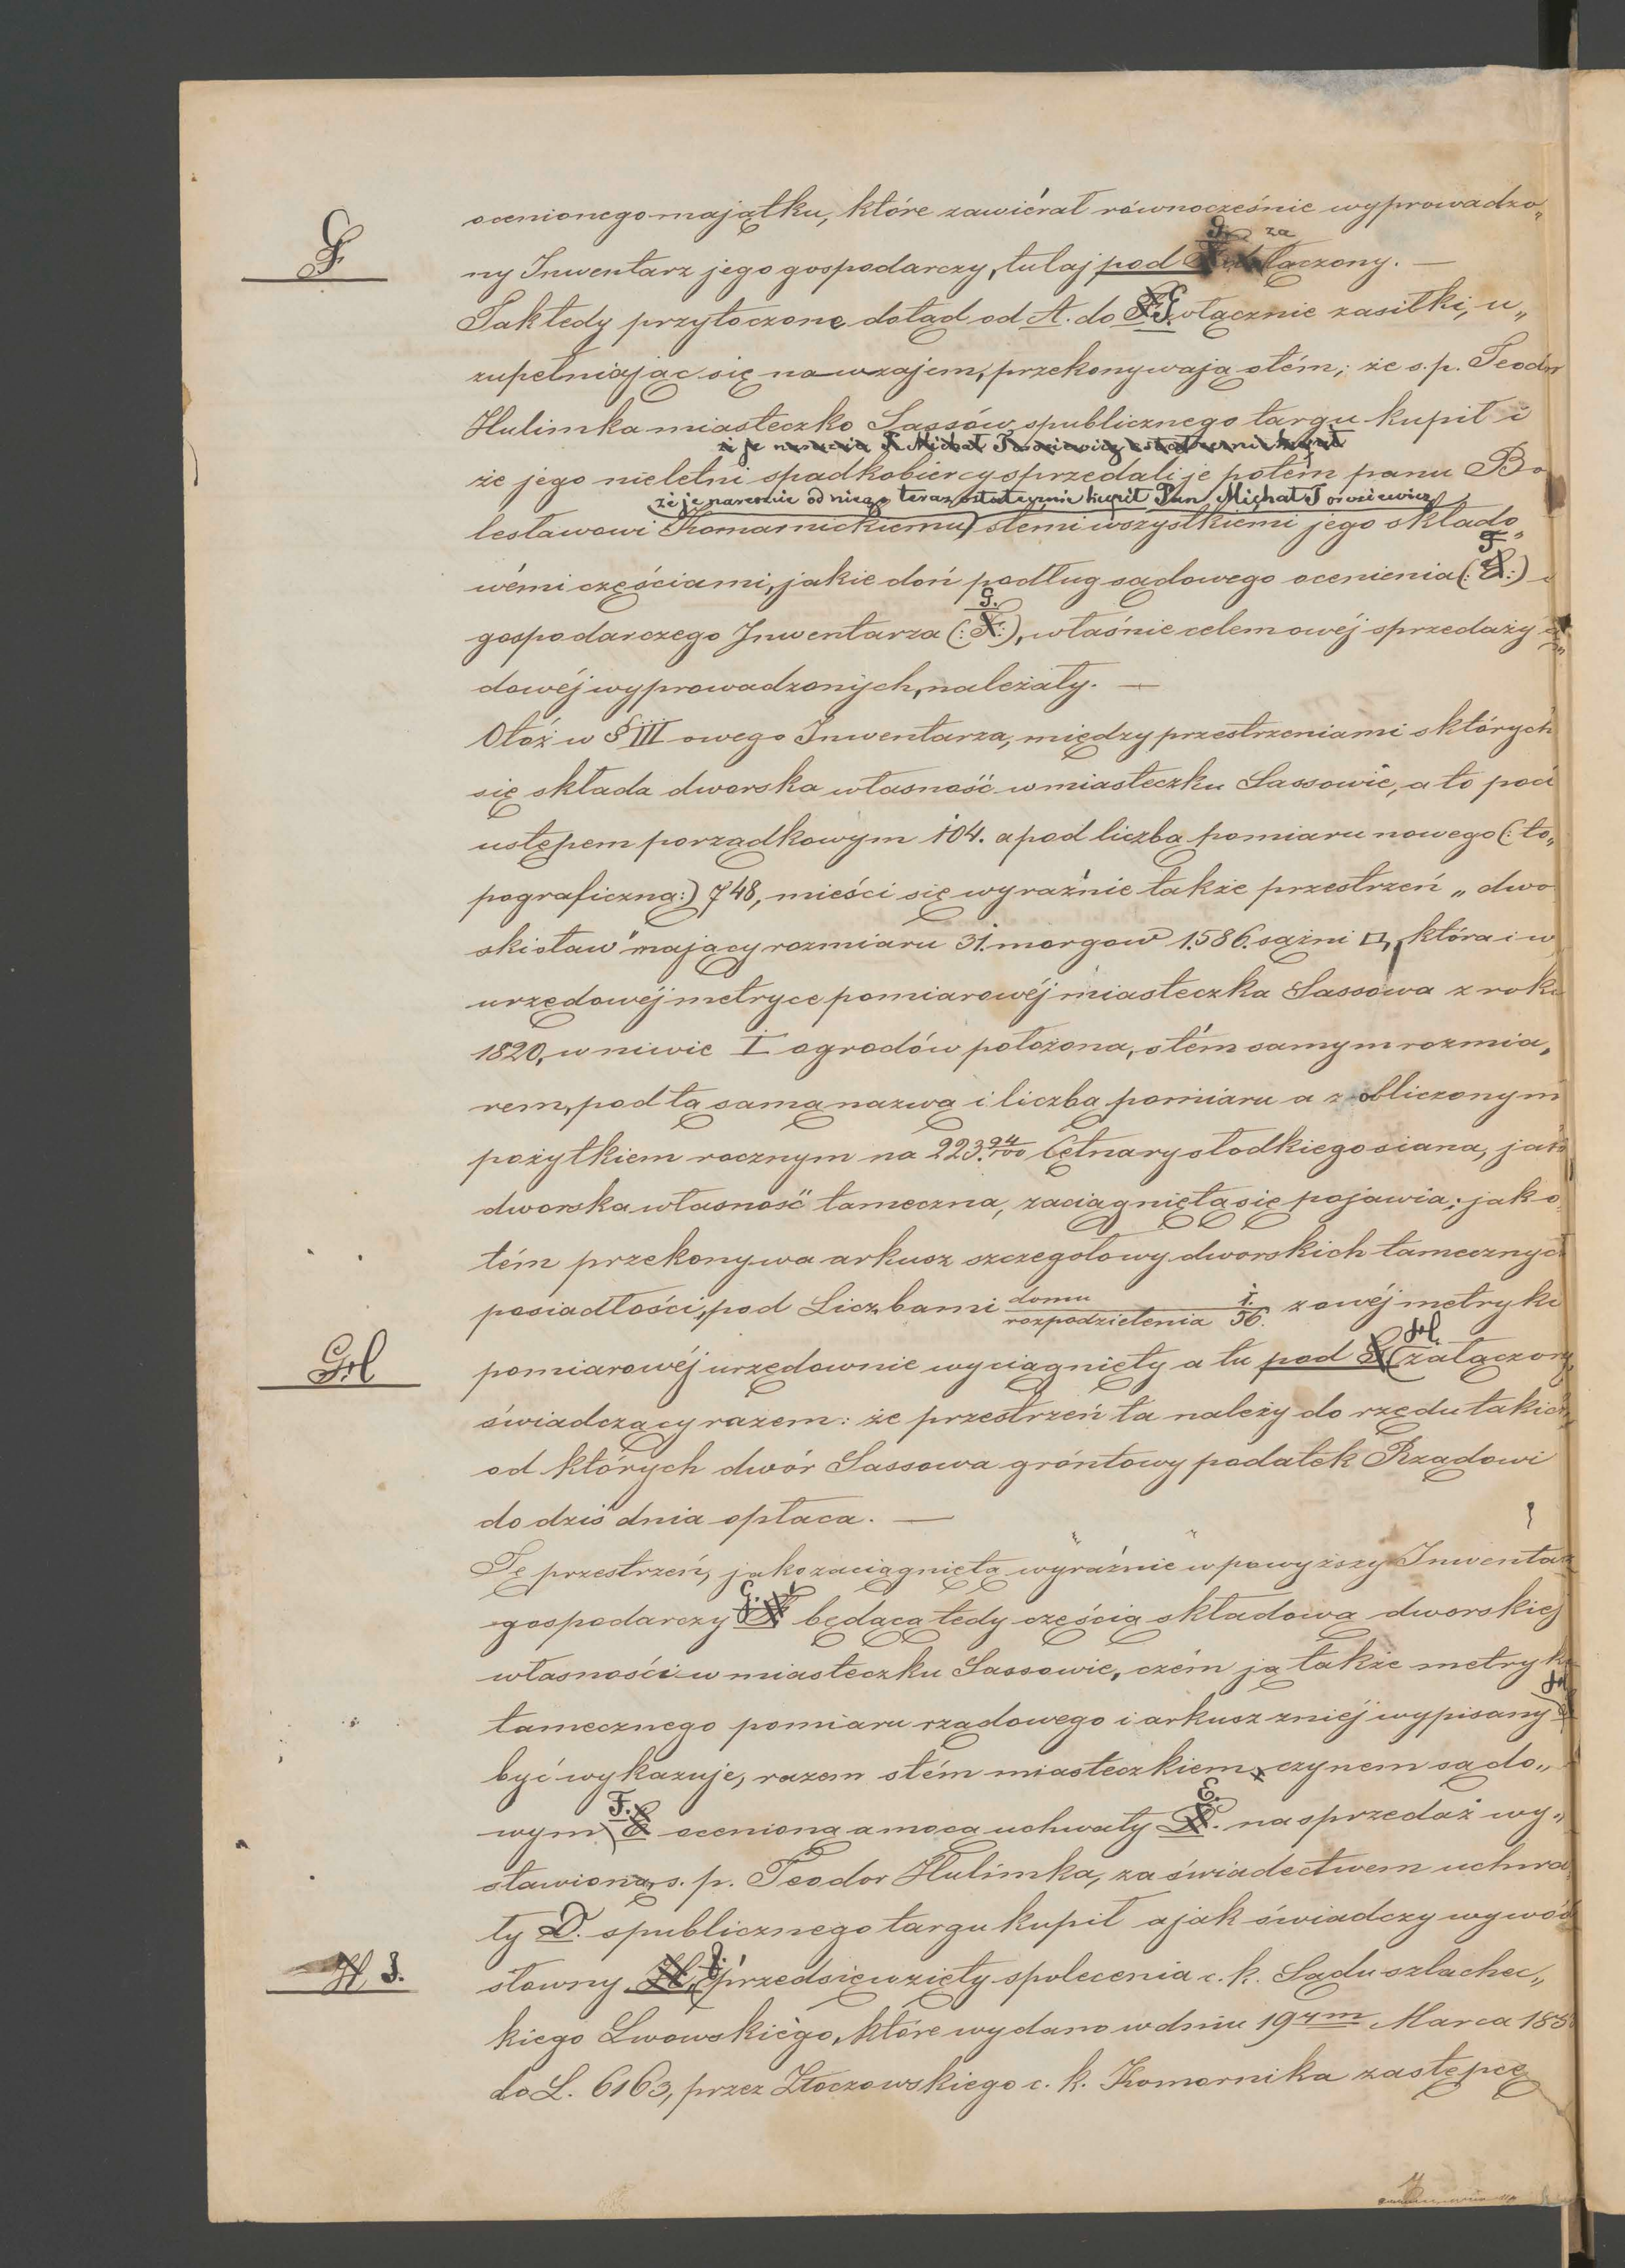 ocenionego majątku, które zawiérał równocześnie wyprowadzo„
G.
G. za
ny Inwentarz jego gospodarczy, tutaj pod łączony. —
Tak tedy przytoczone dotąd od A. do G. włącznie zasiłki, u„
zupełniając się nawzajem, przekonywają otém; że s. p. Teodor
Hulimka miasteczko Sassów spublicznego targu kupił i
i je nareszcie P. Michał Torosiewicz ostatecznie kupił
że jego nieletni spadkobiercy sprzedali je potém panu Bo
że je nareszcie od niego teraz ostatecznie kupił Pan Michał Torosiewicz
lesławowi Komarnickiemu) stemi wszystkiemi jego składo„
F
wémi częściami, jakie doń podług sądowego ocenienia (: E :) i
G.
gospodarczego Inwentarza (: F :), właśnie celem owéj sprzedaży są„
dowéj wyprowadzonych, należały. —
Otóż w § III owego Inwentarza, między przestrzeniami sktórych
się składa dworska własność w miasteczku Sassowie, a to pod
ustępem porządkowym 104. a pod liczbą pomiaru nowego (: to„
pograficzną :) 748, mieści się wyraźnie także przestrzeń „dwo
ski staw" mający rozmiaru 31. morgów 1.586. sążni □, która i w
urzędowéj metryce pomiarowéj miasteczka Sassowa z roku
1820, w niwie I ogrodów położona, stém samym rozmia„
rem, pod tą samą nazwą i liczbą pomiaru a z obliczonym
pożytkiem rocznym na 223.94/100 Cętnary słodkiego siana, jako
dworska własność tameczna, zaciągnięta się pojawia; jak o
tém przekonywa arkusz szczegołowy dworskich tamecznych
posiadłości, pod Liczbami domu/rozpodzielenia 1./56. z owéj metryki
GH
H.
pomiarowéj urzędownie wyciągnięty a tu pod G (załączony,
świadczący razem: że przestrzeń ta należy do rzędu takich
od których dwór Sassowa gróntowy podatek Rządowi
do dziś dnia opłaca. —
Tę przestrzeń, jako zaciągniętą wyraźnie w powyższy Inwentarz
G.
gospodarczy F będącą tedy częścią składową dworskiej
własności w miasteczku Sassowie, czém ją także metryka
H
tamecznego pomiaru rządowego i arkusz zniéj wypisany G
być wykazuje, razem stém miasteczkiem czynem sądo„
F. E.
wym E ocenioną a mocą uchwały D. na sprzedaż wy„
stawioną, s. p. Teodor Hulimka, za świadectwem uchwa
ły D. spublicznego targu kupił a jak świadczy wywód
H J.
J.
słowny H, przedsięwzięty spolecenia c. k. Sądu szlachec„
kiego Lwowskiégo, które wydano w dniu 19tym Marca 185
do L. 6163, przez Złoczowskiego c. k. Komornika zastępcę